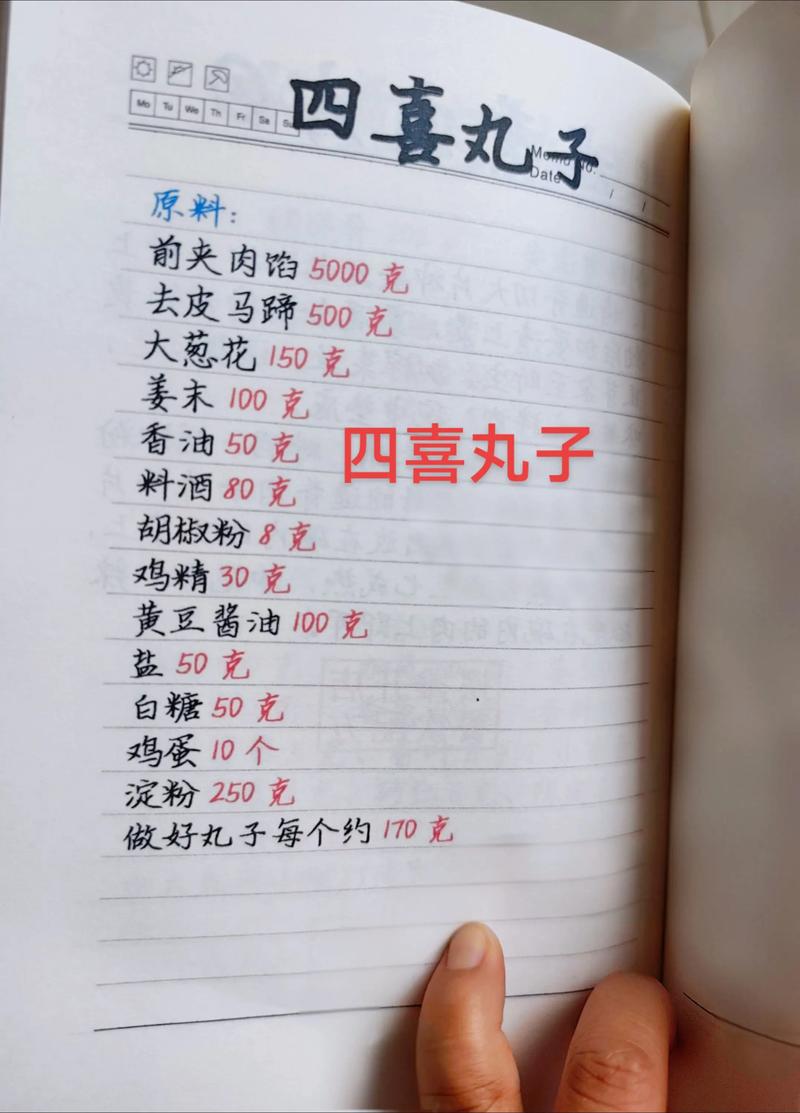 Mo Tu We Th Fr Sa Su
四喜丸子
Memo No.
Date / /
原料:
前夹肉馅 5000 克
去皮马蹄 500 克
大葱花 150 克
姜末 100 克
香油 50 克
四喜丸子
料酒 80 克
胡椒粉 8 克
鸡精 30 克
黄豆酱油 100 克
盐 50 克
白糖 50 克
鸡蛋 10 个
淀粉 250 克
做好丸子每个约 170 克